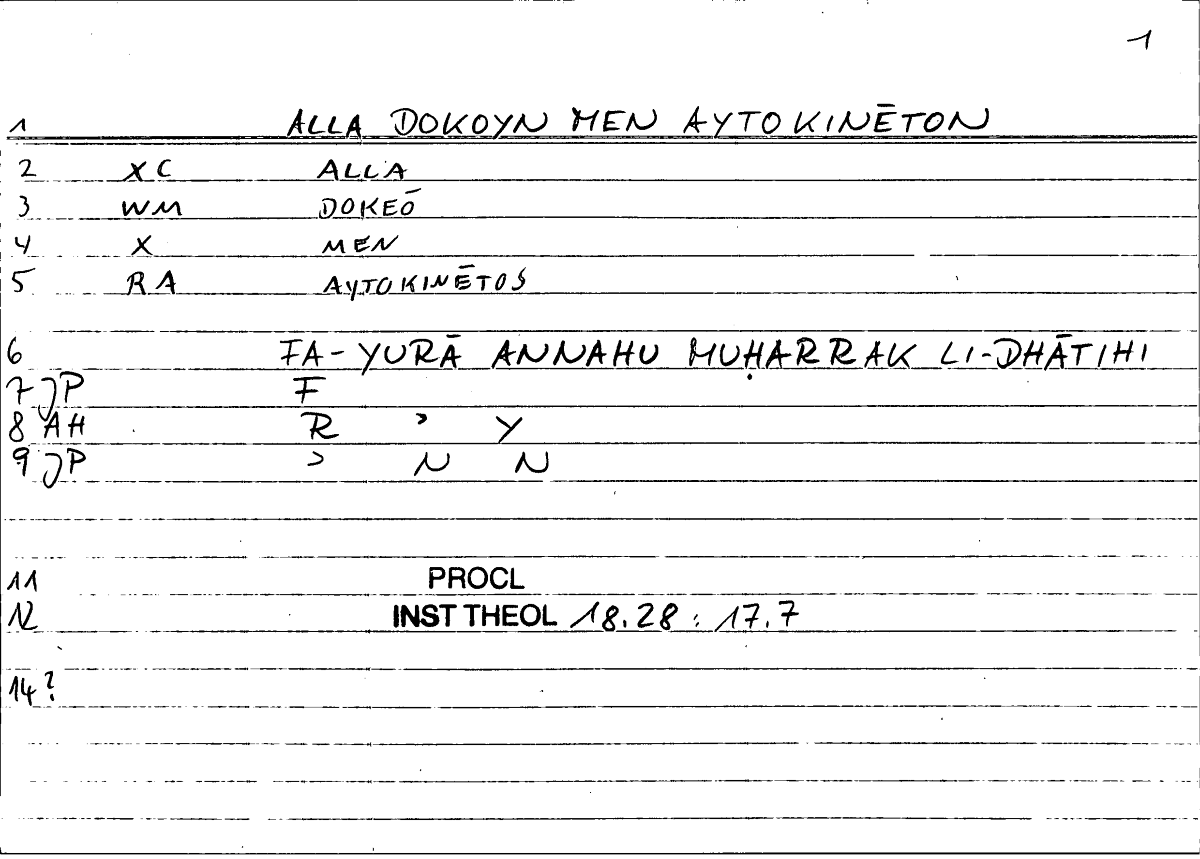 1
1 ALLA DOKOYN MEN AYTOKINĒTON
2 XC ALLA
3 WM DOKEŌ
4 X MEN
5 RA AYTOKINĒTOS
6 FA-YURĀ ANNAHU MUḤARRAK LI-DHĀTIHI
7 JP F
8 AH R ʾ Y
9 JP ʾ N N
11 PROCL
12 INST THEOL 18.28 : 17.7
14?